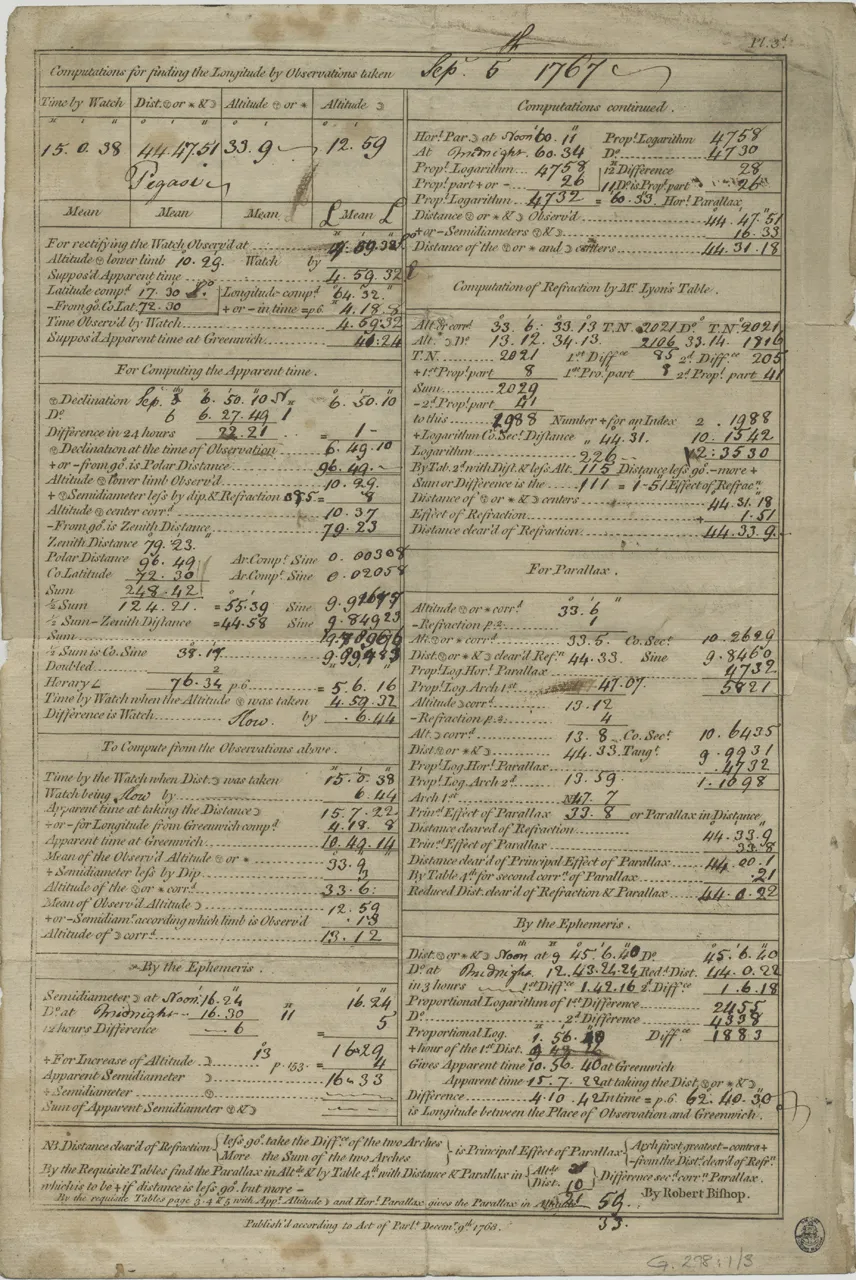 Pl. 3.d
Computations for finding the Longitude by Observations taken Sep.r 5th 1767
Time by Watch Dist. ☉ or * & ☽ Altitude ☉ or * Altitude ☽
15. 0. 38 44.47.51 33. 9 12. 59
Pegasi
Mean Mean Mean Mean
For rectifying the Watch Observ'd at
Altitude ☉ lower limb 10.29. Watch by 4.59.32
Suppos'd Apparent time 4. 59. 32
Latitude comp.d 17. 30 Longitude comp.d 64. 32.
-From 90. Co. Lat. 72.30 + or - in time = p.6. 4. 18. 8
Time Observ'd by Watch 4. 59.32
Suppos'd Apparent time at Greenwich 41:24
For Computing the Apparent time.
☉ Declination Sep. 5th 6. 50. 10 N = 6. 50. 10
D.o 6 6. 27. 49
Difference in 24 hours 22. 21 = 1 -
☉ Declination at the time of Observation 6. 49. 10
+ or - from 90. is Polar Distance 96. 49. -
Altitude ☉ lower limb Observ'd 10. 29.
+ ☉ Semidiameter less by dip. & Refraction = 8
Altitude ☉ center corr.d 10. 37
-From 90. is Zenith Distance 79. 23
Zenith Distance 79. 23.
Polar Distance 96. 49 Ar. Comp.t Sine 0. 00308
Co. Latitude 72. 30 Ar. Comp.t Sine 0. 02058
Sum 248. 42
½ Sum 124. 21. = 55.39 Sine
½ Sum - Zenith Distance = 44.58 Sine 9. 84923
Sum
½ Sum is Co. Sine 38. 17
Doubled 2
Horary ∠ 76. 34 p.6 = 5. 6. 16
Time by Watch when the Altitude ☉ was taken 4. 59. 32
Difference is Watch slow. by . 6. 44
To Compute from the Observations above.
Time by the Watch when Dist. ☽ was taken 15. 0. 38
Watch being slow by 6. 44
Apparent time at taking the Distance ☽ 15. 7. 22
+ or - for Longitude from Greenwich comp.d 4. 18. 8
Apparent time at Greenwich 10. 49. 14
Mean of the Observ'd Altitude ☉ or * 33. 9
+ Semidiameter less by Dip. 3
Altitude of the ☉ or * corr.d 33. 6:
Mean of Observ'd Altitude ☽ 12. 59
+ or - Semidiam.r according which limb is Observ'd . 13
Altitude of ☽ corr.d 13. 12
By the Ephemeris.
Semidiameter ☽ at Noon 16. 24 16. 24
D.o at Midnight 16. 30 11 5
12 hours Difference 6 =
16. 29
+ For Increase of Altitude ☽ 13 p. 153. = 4
Apparent Semidiameter ☽ 16. 33
+ Semidiameter ☉
Sum of Apparent Semidiameter ☉ & ☽
Computations continued.
Hor.l Par. ☽ at Noon 60. 11 Prop.l Logarithm 4758
At Midnight. 60. 34 D.o 4730
Prop.l Logarithm 4758 12 Difference 28
Prop.l part + or - 26 11 D.o is Prop.l part 26
Prop.l Logarithm 4732 = 60. 33 Hor.l Parallax
Distance ☉ or * & ☽ Observ'd 44. 47. 51
+ or - Semidiameters ☉ & ☽ 16. 33
Distance of the ☉ or * and ☽ centers 44. 31. 18
Computation of Refraction by Mr. Lyon's Table.
Alt. * corr.d 33. 6: 33. 13 T.N. 2021 D.o T.N. 2021
Alt. ☽ D.o 13. 12. 34. 13. 2106 33. 14. 1816
T.N. 2021 1st Diff.ce 85 2d Diff.ce 205
+ 1st Prop.l part 8 1st Pro.l part 8 2d Prop.l part 41
Sum 2029
- 2d Prop.l part 41
to this 1988 Number + for an Index 2 . 1988
+ Logarithm Co. Sec.t Distance 44. 31. 10. 1542
Logarithm 226 2: 3530
By Tab. 2d with Dist. & less Alt. 115 Distance less 90. - more +
Sum or Difference is the 111 = 1-51 Effect of Refrac.n
Distance of ☉ or * & ☽ centers 44. 31. 18
Effect of Refraction + 1. 51
Distance clear'd of Refraction 44. 33. 9
For Parallax.
Altitude ☉ or * corr.d 33. 6
- Refraction p.2 1
Alt. ☉ or * corr.d 33. 5. Co. Sec.t 10. 2629
Dist. ☉ or * & ☽ clear'd Ref.n 44. 33. Sine 9. 8460
Prop. Log. Hor.l Parallax 4732
Prop.l Log. Arch 1st 47. 07. 5821
Altitude ☽ corr.d 13. 12
- Refraction p.2 4
Alt. ☽ corr.d 13. 8 Co. Sec.t 10. 6435
Dist. ☉ or * & ☽ 44. 33. Tang.t 9. 9931
Prop.l Log. Hor.l Parallax 4732
Prop.l Log. Arch 2d 13. 59. 1. 1098
Arch 1st 47. 7
Prin.l Effect of Parallax 33. 8 or Parallax in Distance
Distance cleared of Refraction 44. 33. 9
Prin.l Effect of Parallax 33. 8
Distance clear'd of Principal Effect of Parallax 44. 00. 1
By Table 4th for second corr.n of Parallax . 21
Reduced Dist. clear'd of Refraction & Parallax 44. 0. 22
By the Ephemeris.
Dist. ☉ or * & ☽ Noon at 9 45. 6. 40 D.o 45. 6. 40
D.o at Midnight. 12. 43. 24. 24 Red.d Dist. 44. 0. 22
in 3 hours 1st Diff.ce 1. 42. 16 2d Diff.ce 1. 6. 18
Proportional Logarithm of 1st Difference 2455
D.o 2d Difference 4338
Proportional Log. 1. 56. Diff.ce 1883
+ hour of the 1st Dist.
Gives Apparent time 10. 56. 40 at Greenwich
Apparent time 15. 7. 22 at taking the Dist. ☉ or * & ☽
Difference 4. 10. 42 In time = p.6 62. 40. 30
is Longitude between the Place of Observation and Greenwich.
NB. Distance clear'd of Refraction { less 90. take the Diff.ce of the two Arches } is Principal Effect of Parallax { Arch first greatest - contra +
More the Sum of the two Arches - from the Dist. clear'd of Ref.n
By the Requisite Tables find the Parallax in Alt.de & by Table 4th with Distance & Parallax in { Alt.de Dist. 10 } Difference sec.d corr.n Parallax.
which is to be + if distance is less 90. but more -
By the requisite Tables page 3.4 & 5 with App.t Altitude ☽ and Hor.l Parallax gives the Parallax in 59. By Robert Bishop.
33.
Publish'd according to Act of Parl.t Decem.r 9th 1768.
G. 278:1/3